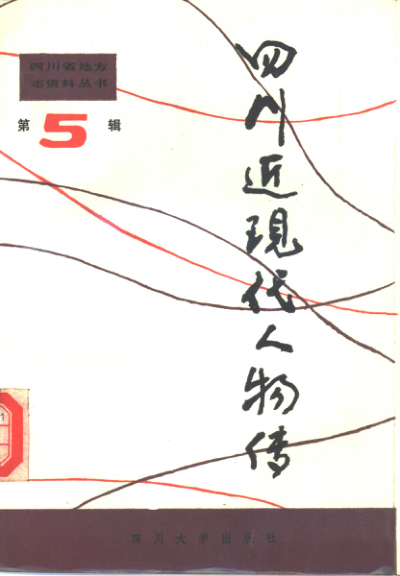 四川省地方
志资料丛书
第5辑
四川近现代人物传
四川大学出版社
1